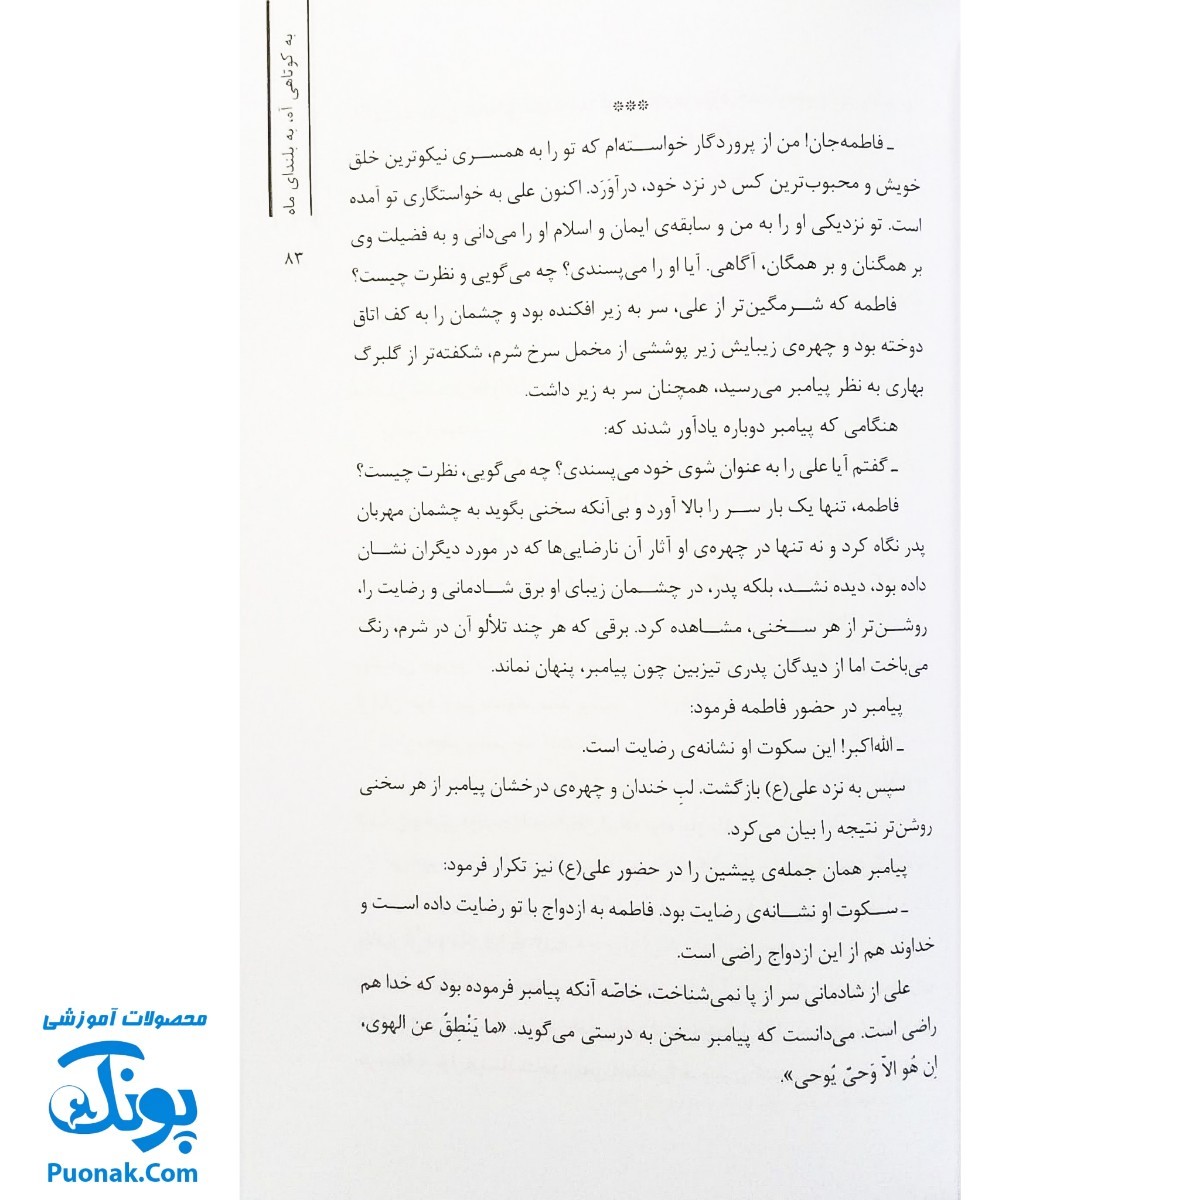 به کوتاهی آه، به بلندای ماه
۸۳
***
ـ فاطمه‌جان! من از پروردگار خواسته‌ام که تو را به همسری نیکوترین خلق
خویش و محبوب‌ترین کس در نزد خود، درآوَرَد. اکنون علی به خواستگاری تو آمده
است. تو نزدیکی او را به من و سابقه‌ی ایمان و اسلام او را می‌دانی و به فضیلت وی
بر همگنان و بر همگان، آگاهی. آیا او را می‌پسندی؟ چه می‌گویی و نظرت چیست؟
فاطمه که شرمگین‌تر از علی، سر به زیر افکنده بود و چشمان را به کف اتاق
دوخته بود و چهره‌ی زیبایش زیر پوششی از مخمل سرخ شرم، شکفته‌تر از گلبرگ
بهاری به نظر پیامبر می‌رسید، همچنان سر به زیر داشت.
هنگامی که پیامبر دوباره یادآور شدند که:
ـ گفتم آیا علی را به عنوان شوی خود می‌پسندی؟ چه می‌گویی، نظرت چیست؟
فاطمه، تنها یک بار سر را بالا آورد و بی‌آنکه سخنی بگوید به چشمان مهربان
پدر نگاه کرد و نه تنها در چهره‌ی او آثار آن نارضایی‌ها که در مورد دیگران نشان
داده بود، دیده نشد، بلکه پدر، در چشمان زیبای او برق شادمانی و رضایت را،
روشن‌تر از هر سخنی، مشاهده کرد. برقی که هر چند تلألو آن در شرم، رنگ
می‌باخت اما از دیدگان پدری تیزبین چون پیامبر، پنهان نماند.
پیامبر در حضور فاطمه فرمود:
ـ الله‌اکبر! این سکوت او نشانه‌ی رضایت است.
سپس به نزد علی(ع) بازگشت. لبِ خندان و چهره‌ی درخشان پیامبر از هر سخنی
روشن‌تر نتیجه را بیان می‌کرد.
پیامبر همان جمله‌ی پیشین را در حضور علی(ع) نیز تکرار فرمود:
ـ سکوت او نشانه‌ی رضایت بود. فاطمه به ازدواج با تو رضایت داده است و
خداوند هم از این ازدواج راضی است.
علی از شادمانی سر از پا نمی‌شناخت، خاصّه آنکه پیامبر فرموده بود که خدا هم
راضی است. می‌دانست که پیامبر سخن به درستی می‌گوید. «ما یَنْطِقُ عن الهوی،
اِن هُو الاّ وَحیٌ یُوحی».
محصولات آموزشی
پونک
Puonak.Com